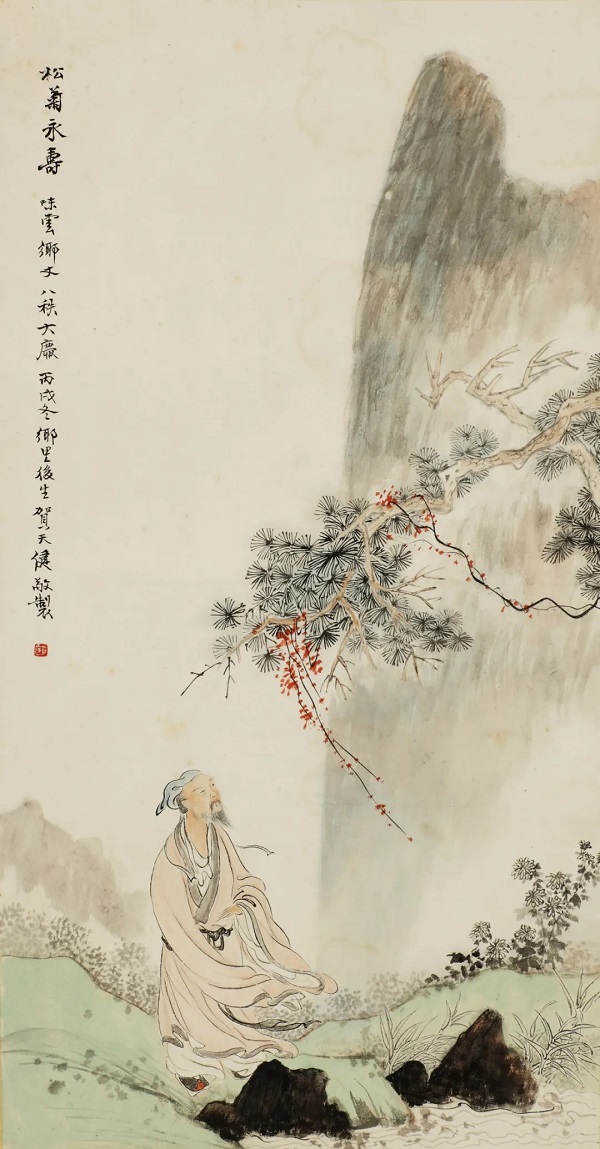 松菊永壽 味雲鄉丈八秩大慶 丙戌冬鄉里後生賀天健敬製